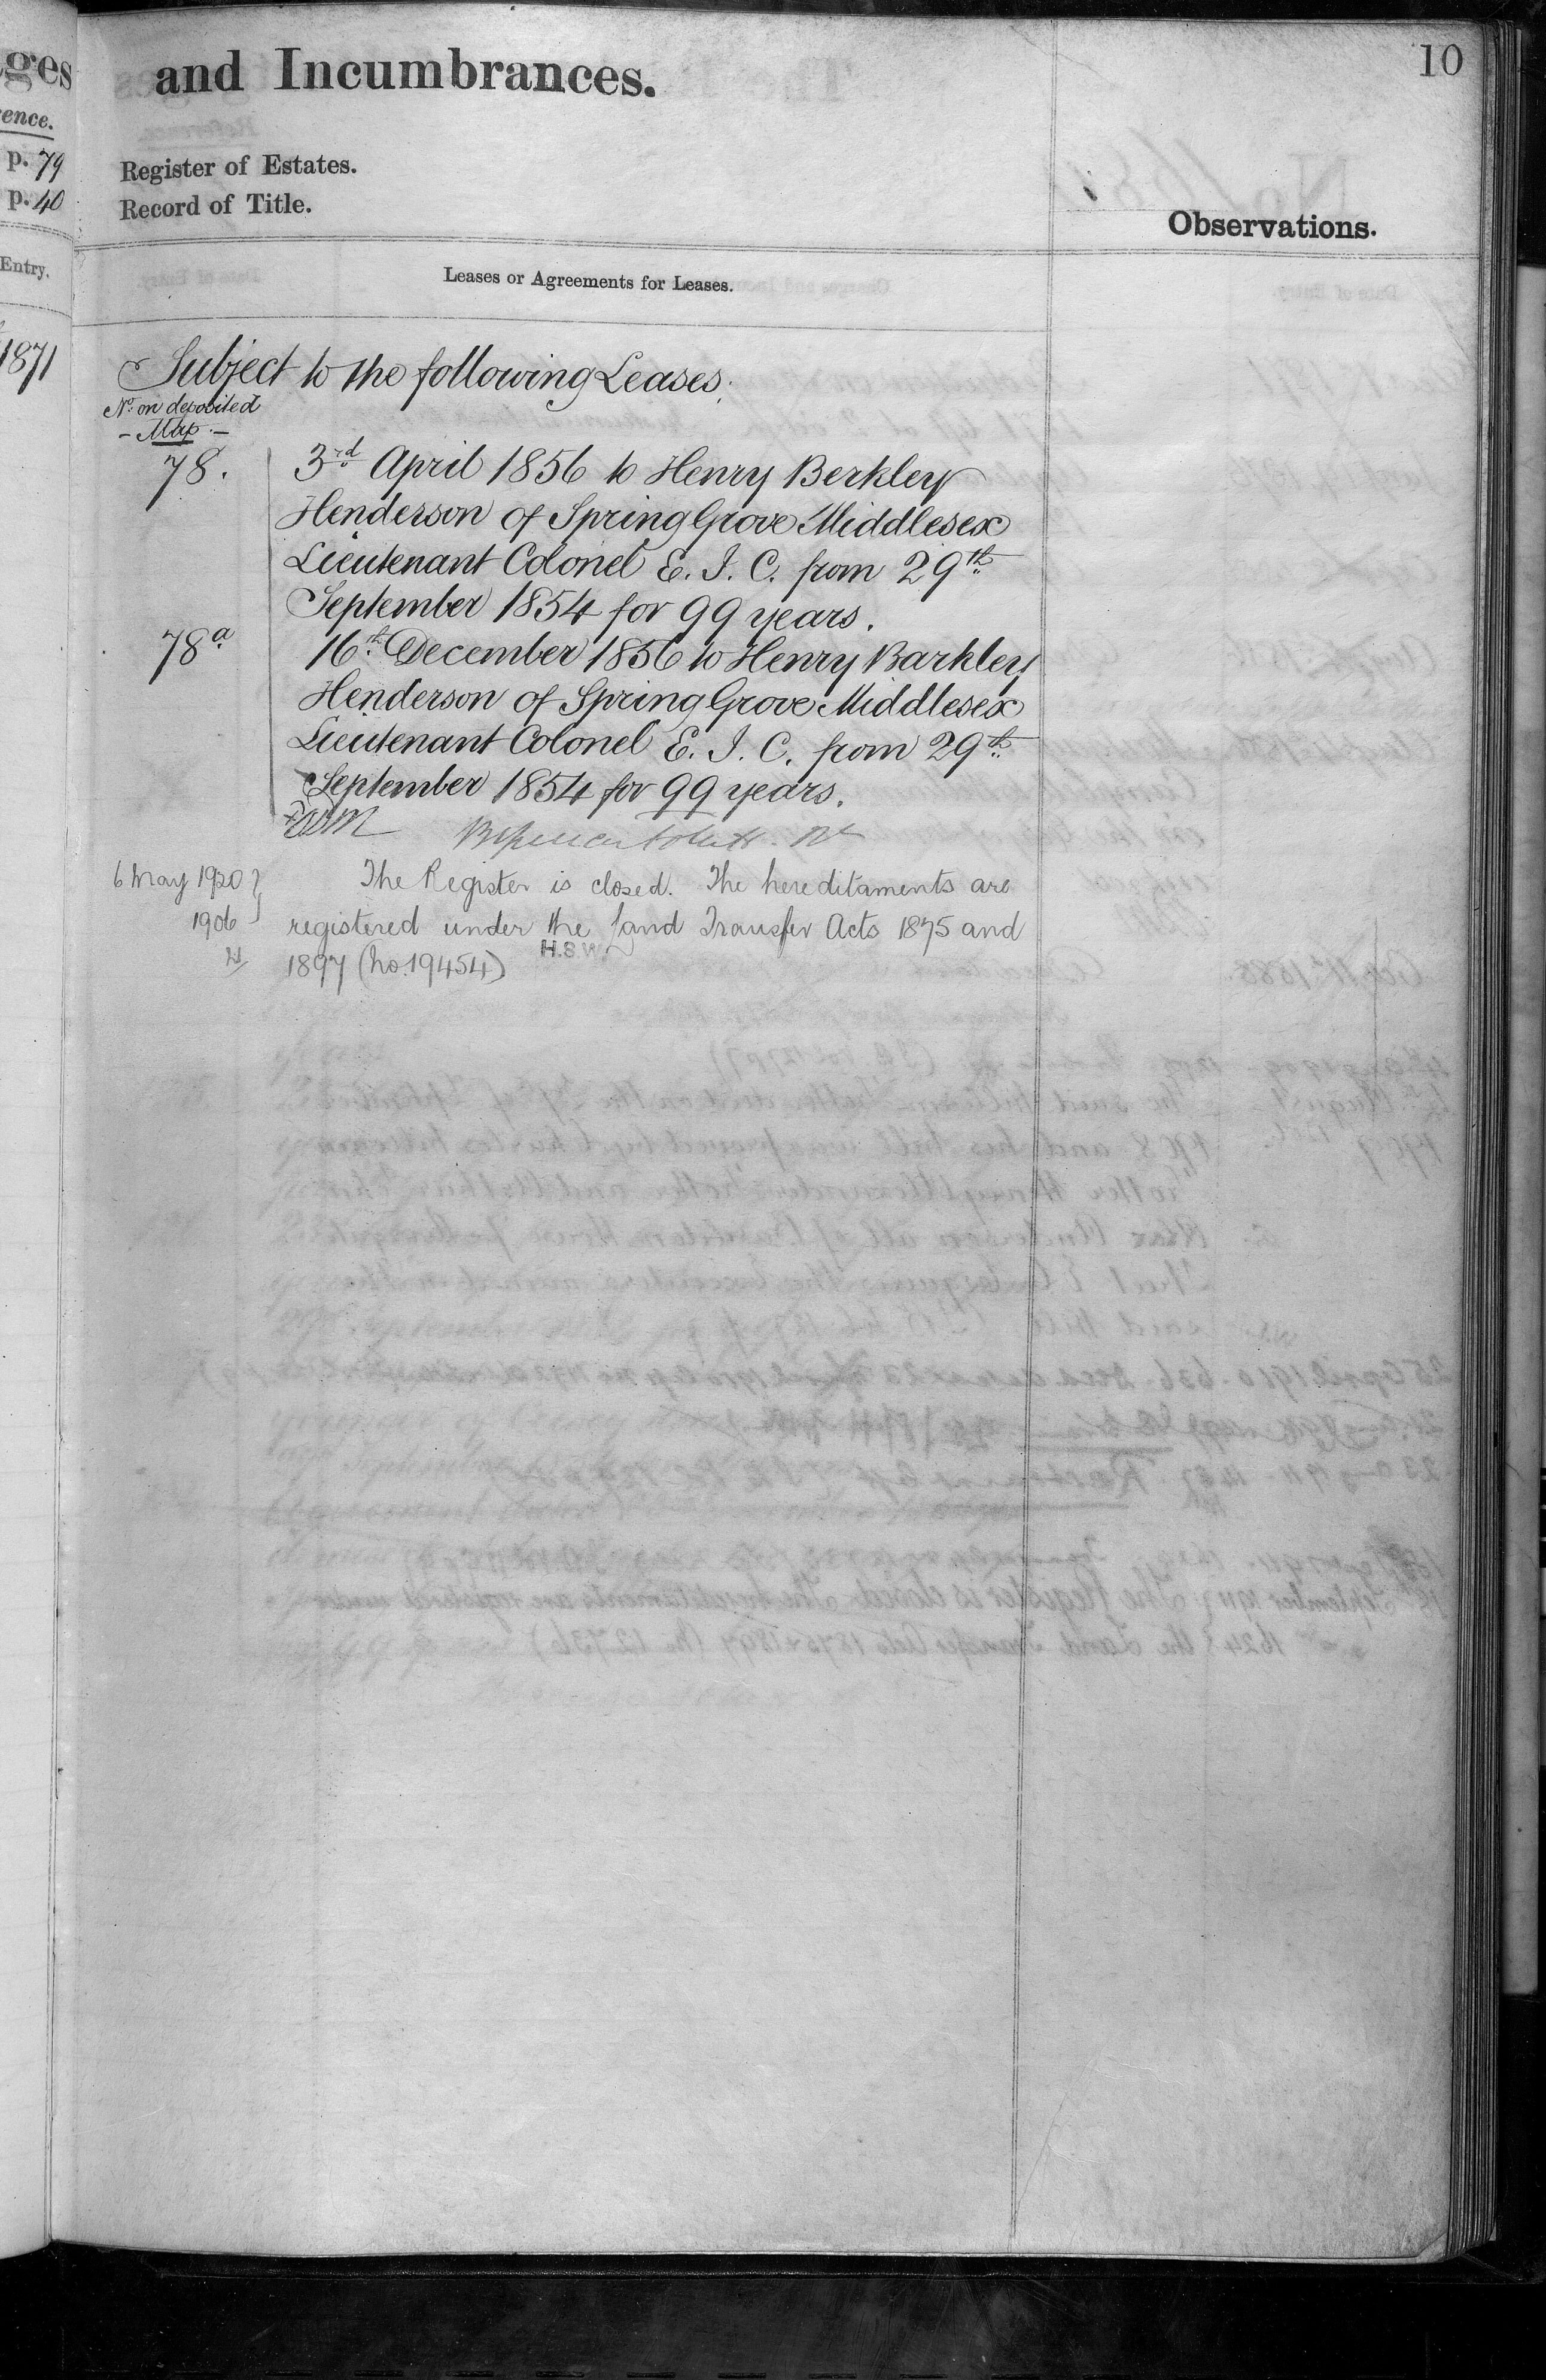 ges
and Incumbrances.
10
ence.
p. 79
Register of Estates.
p. 40
Record of Title.
Observations.
Entry.
Leases or Agreements for Leases.
1871
Subject to the following Leases.
No. on deposited
- Map. -
78. 3rd April 1856 to Henry Berkley
Henderson of Spring Grove Middlesex
Lieutenant Colonel E. I. C. from 29th
September 1854 for 99 years.
78a 16th December 1856 to Henry Barkley
Henderson of Spring Grove Middlesex
Lieutenant Colonel E. I. C. from 29th
September 1854 for 99 years.
6 May 1920 The Register is closed. The hereditaments are
1906 registered under the Land Transfer Acts 1875 and
1897 (no. 19454) H.S.W.